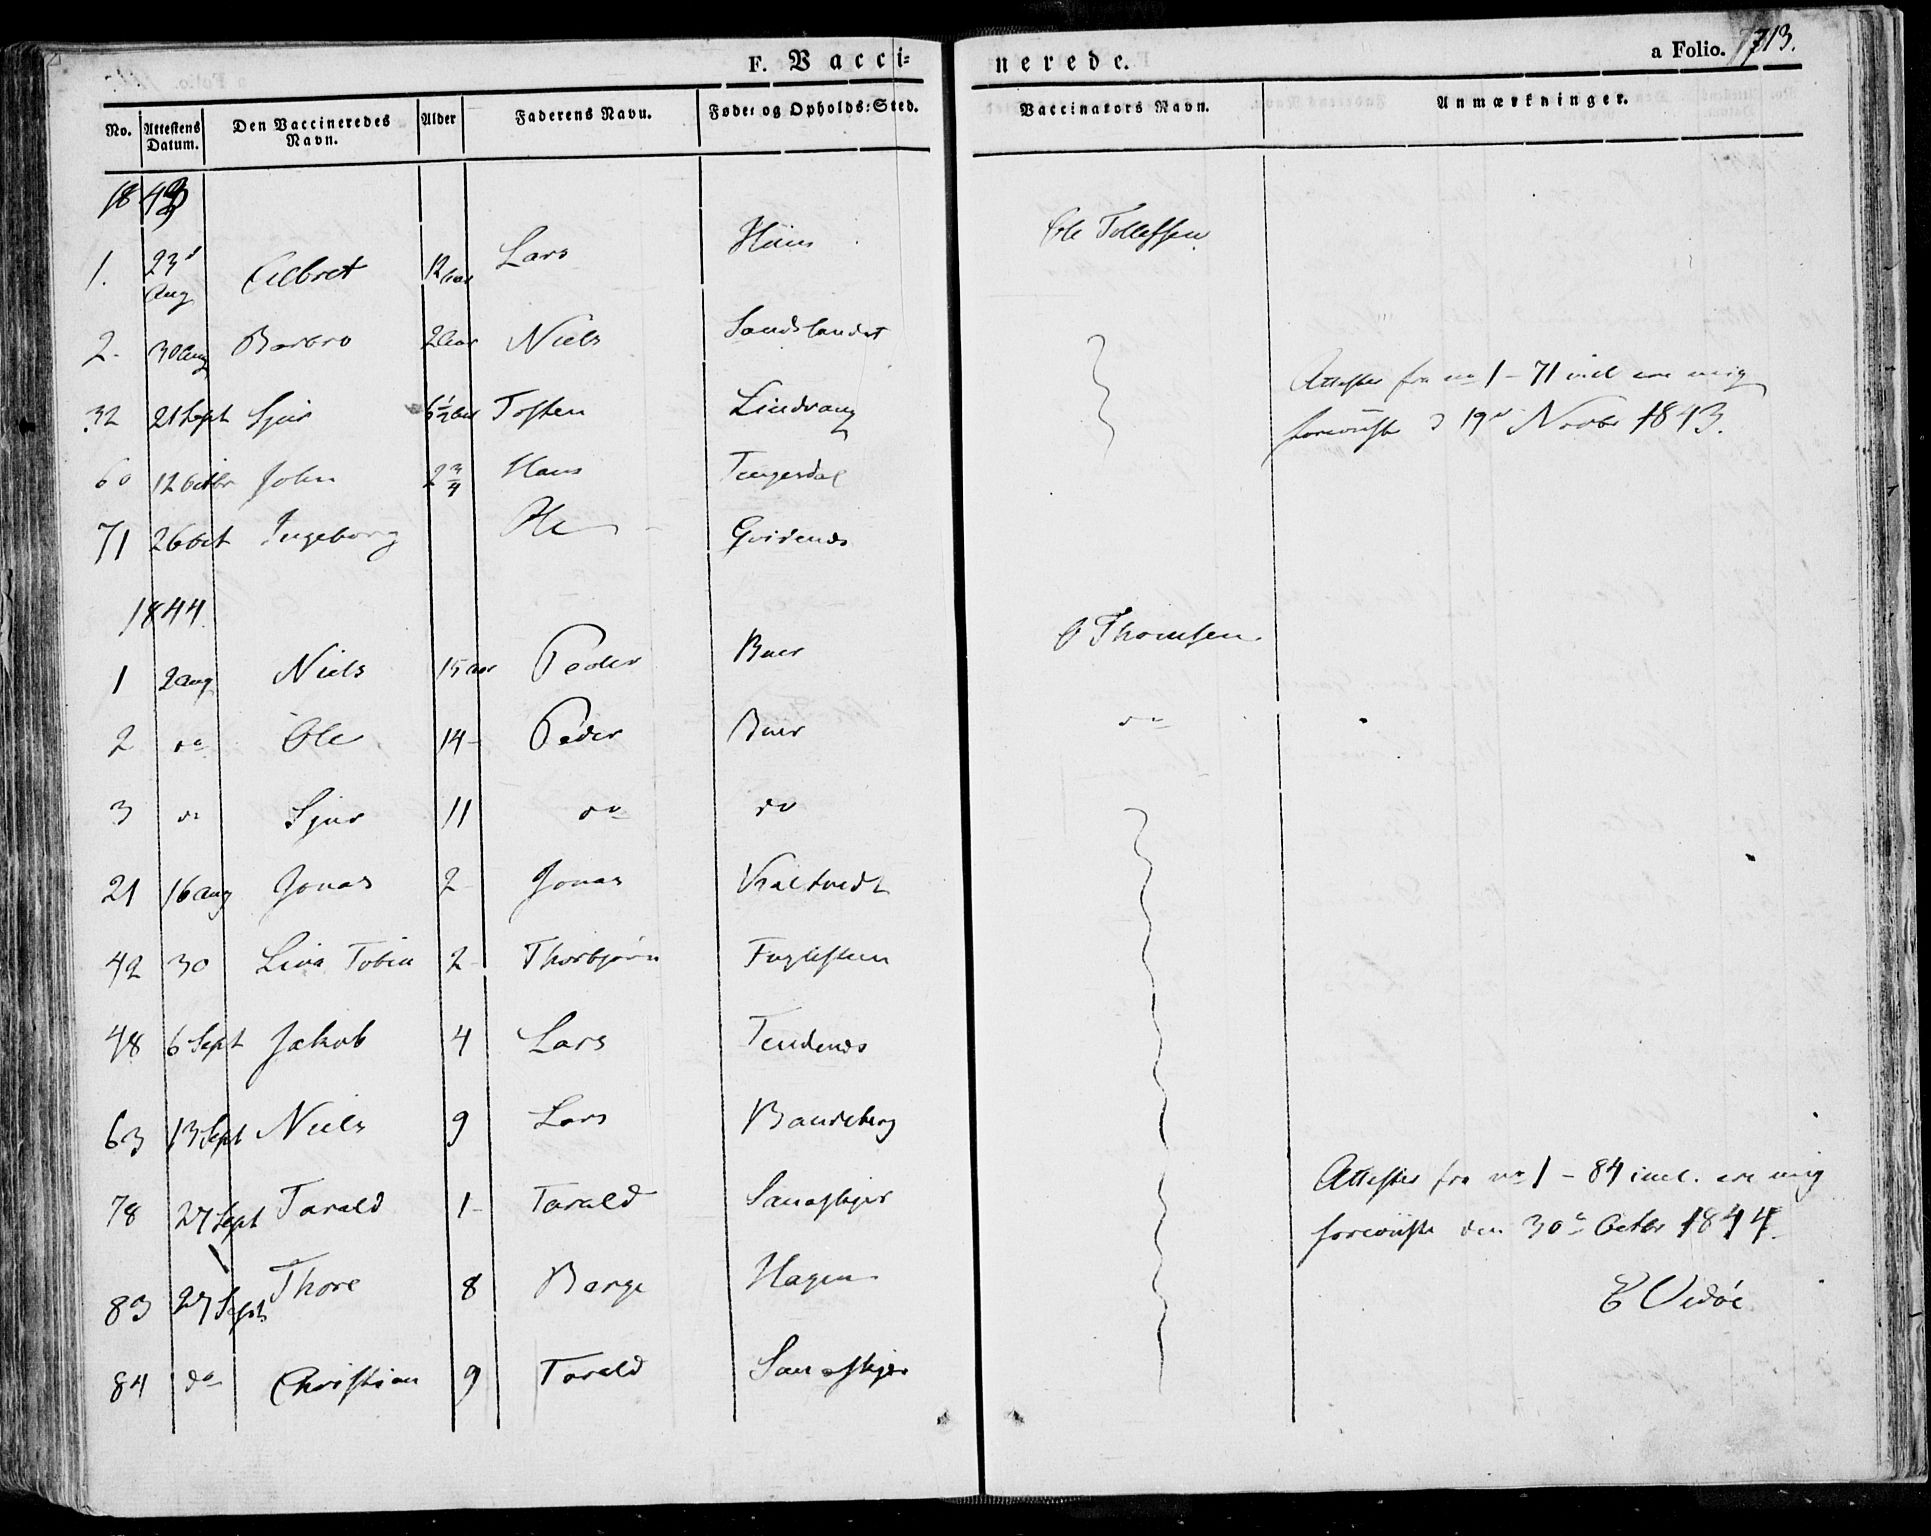 F. Vacci=
nerede.
a Folio. 713.
No. Attestens Datum. Den Vaccineredes Navn. Alder Faderens Navn. Føde= og Opholds=Sted. Vaccinators Navn. Anmærkninger.
1843
1. 23d Aug Elbret 12 aar Lars Ole Tollefsen
2. 30 Aug Barbro 2 aar Niels Sandslandet
32 21 Sept Sjur 6½ aar Tosten Lindvang
Attester fra no 1 – 71 incl ere mig
foreviiste d 19d Novbr 1843.
60 12 Octbr John 2 3/4 Hans Tengesdal
71 26 Oct Ingeborg Ole Qvidenes
1844
1 2 Aug Niels 15 aar Peder Buer O Thomsen.
2 do Ole 14 – Peder Buer do
3 do Sjur 11 do do
21 16 Aug Jonas 2 – Jonas Kraltvedt
42 30 Lina Tobia 2 – Thorbjørn Fuglesteen
48 6 Sept Jakob 4 Lars Tendenes
63 13 Sept Niels 9 Lars Bandeberg
78 27 Sept Tarald 1 – Tarald
Attester fra no 1 – 84 incl. ere mig
foreviiste den 30te Octbr 1844.
83 27 Sept Thore 8 Børge Hagen
E Vidøe
84 do Christian 9 Tarald